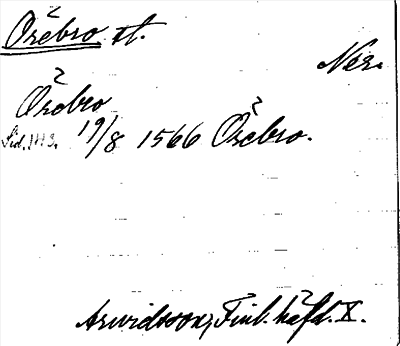 Örebro st.
När.
Örebro
Sid. 113. 19/8 1566 Örebro.
Arwidsson, Finl. häfd. X.